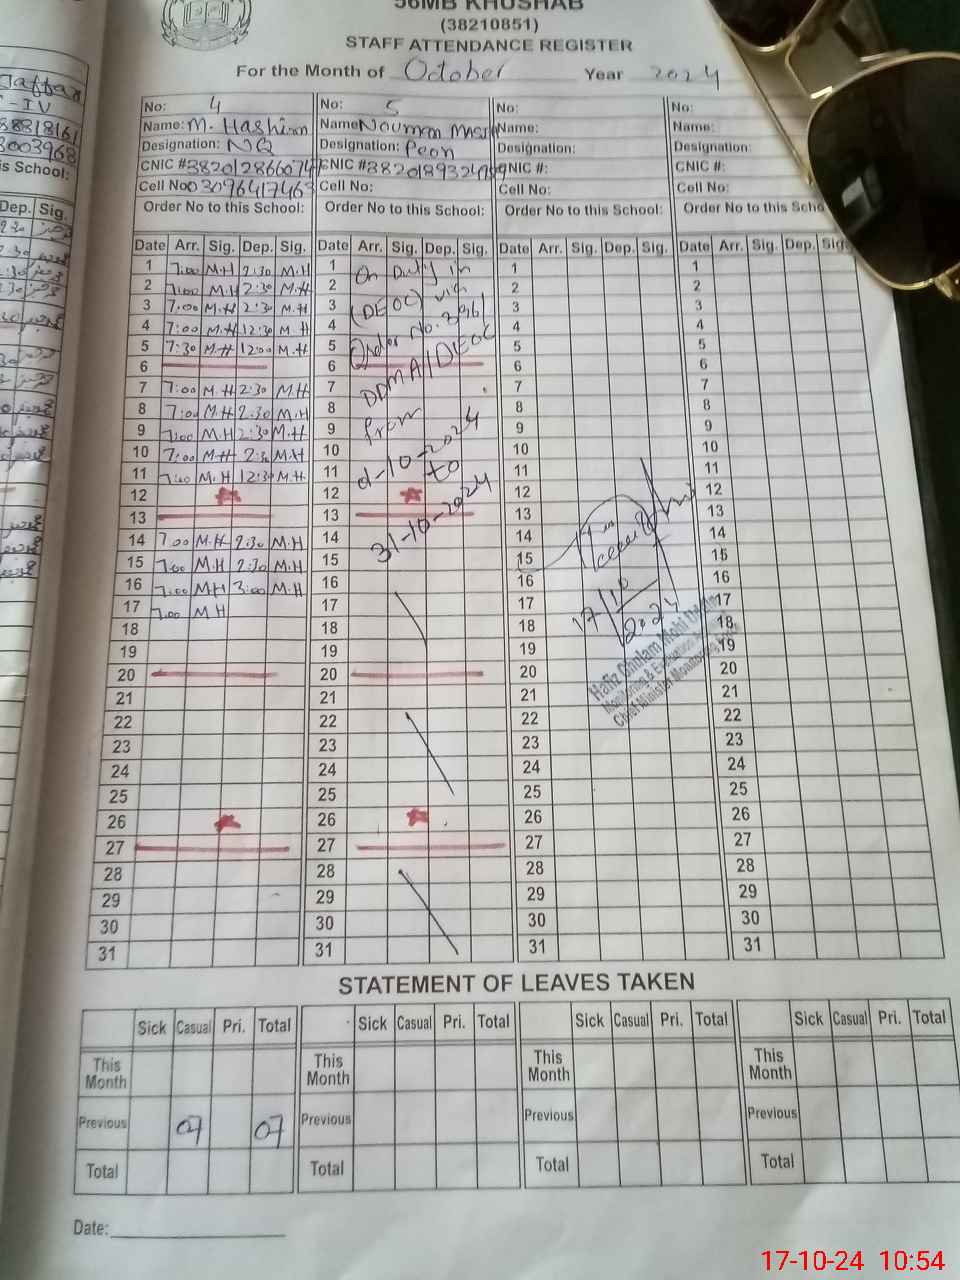 56MB KHUSHAB
(38210851)
STAFF ATTENDANCE REGISTER
For the Month of October Year 2024
Jaffar
-IV
is School:
Dep. Sig.
No: 4
Name: M. Hashim
Designation: NQ
CNIC #
Cell No: 03096417463
Order No to this School:
Date Arr. Sig. Dep. Sig.
1 7:00 M.H 2:30 M.H
2 7:00 M.H 2:30 M.H
3 7:00 M.H 2:30 M.H
4 7:00 M.H 12:30 M.H
5 7:30 M.H 12:00 M.H
6
7 7:00 M.H 2:30 M.H
8 7:00 M.H 2:30 M.H
9 7:00 M.H 2:30 M.H
10 7:00 M.H 2:30 M.H
11 7:00 M.H 12:30 M.H
12
13
14 7:00 M.H 2:30 M.H
15 7:00 M.H 2:30 M.H
16 7:00 M.H 3:00 M.H
17 7:00 M.H
18
19
20
21
22
23
24
25
26
27
28
29
30
31
No: 5
Name Nouman Masih
Designation: Peon
CNIC #
Cell No:
Order No to this School:
Date Arr. Sig. Dep. Sig.
1
2
3
4
5
6
7
8
9
10
11
12
13
14
15
16
17
18
19
20
21
22
23
24
25
26
27
28
29
30
31
On Duty in
(DEOC) via
Order No. 3961
DDMA/DEOC
from
-10-2024
to
31-10-2024
No:
Name:
Designation:
CNIC #:
Cell No:
Order No to this School:
Date Arr. Sig. Dep. Sig.
1
2
3
4
5
6
7
8
9
10
11
12
13
14
15
16
17
18
19
20
21
22
23
24
25
26
27
28
29
30
31
17/10/2024
Hafiz Ghulam Mohi
Monitoring & Evaluation
Chief Minister Monitoring
No:
Name:
Designation:
CNIC #:
Cell No:
Order No to this Scho
Date Arr. Sig. Dep. Sig.
1
2
3
4
5
6
7
8
9
10
11
12
13
14
15
16
17
18
19
20
21
22
23
24
25
26
27
28
29
30
31
STATEMENT OF LEAVES TAKEN
Sick Casual Pri. Total Sick Casual Pri. Total Sick Casual Pri. Total Sick Casual Pri. Total
This Month This Month This Month This Month
Previous 07 07 Previous Previous Previous
Total Total Total Total
Date:
17-10-24 10:54